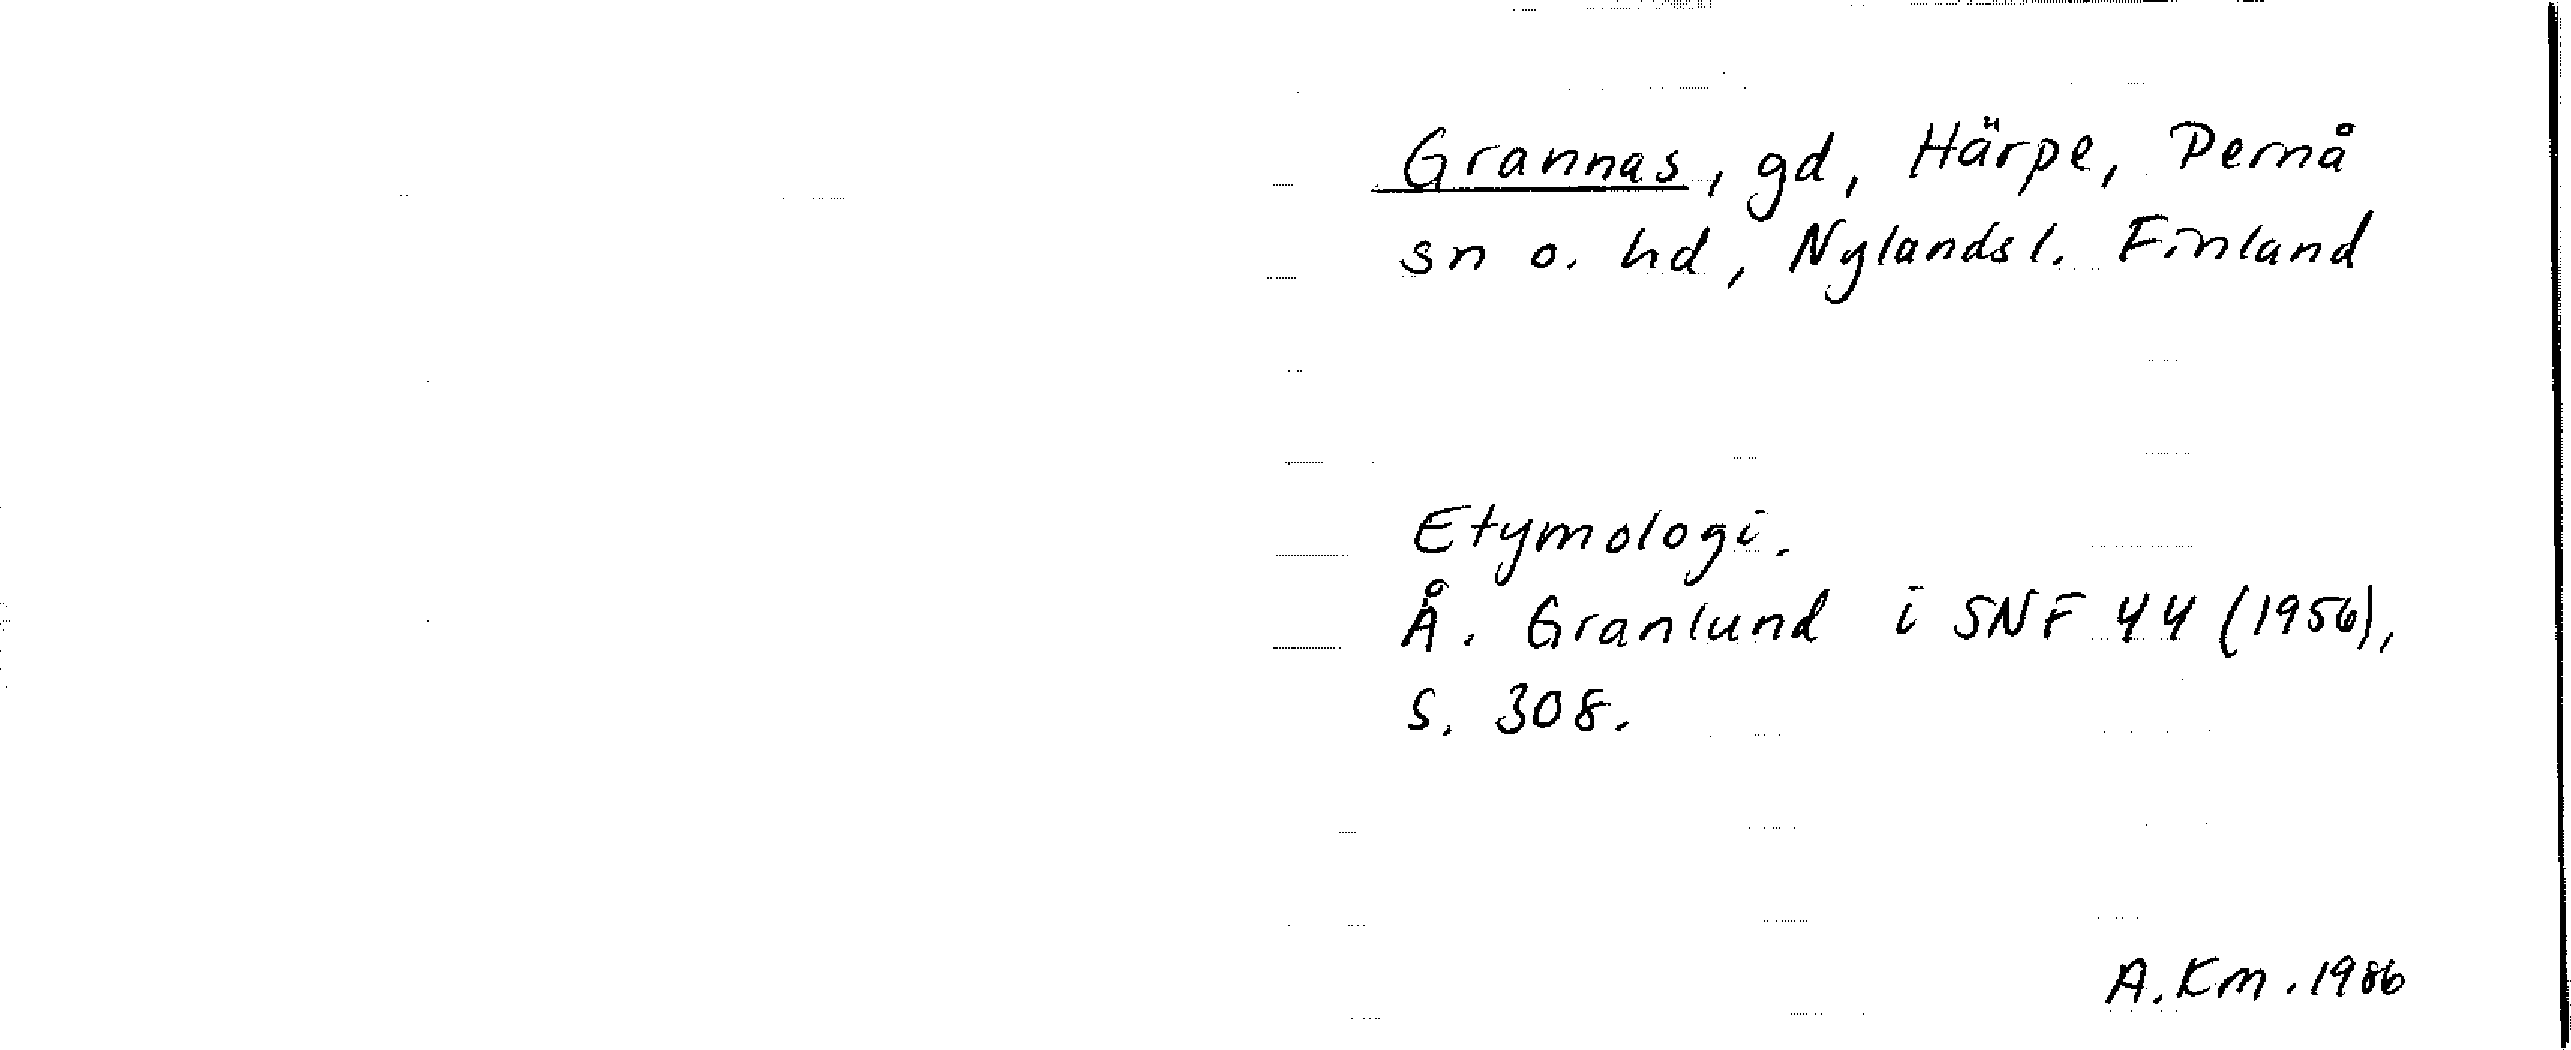 Grannas, gd, Härpe, Pernå
sn o. hd, Nylandsl. Finland
Etymologi.
Å. Granlund i SNF 44 (1956),
s. 308.
A. Km. 1986